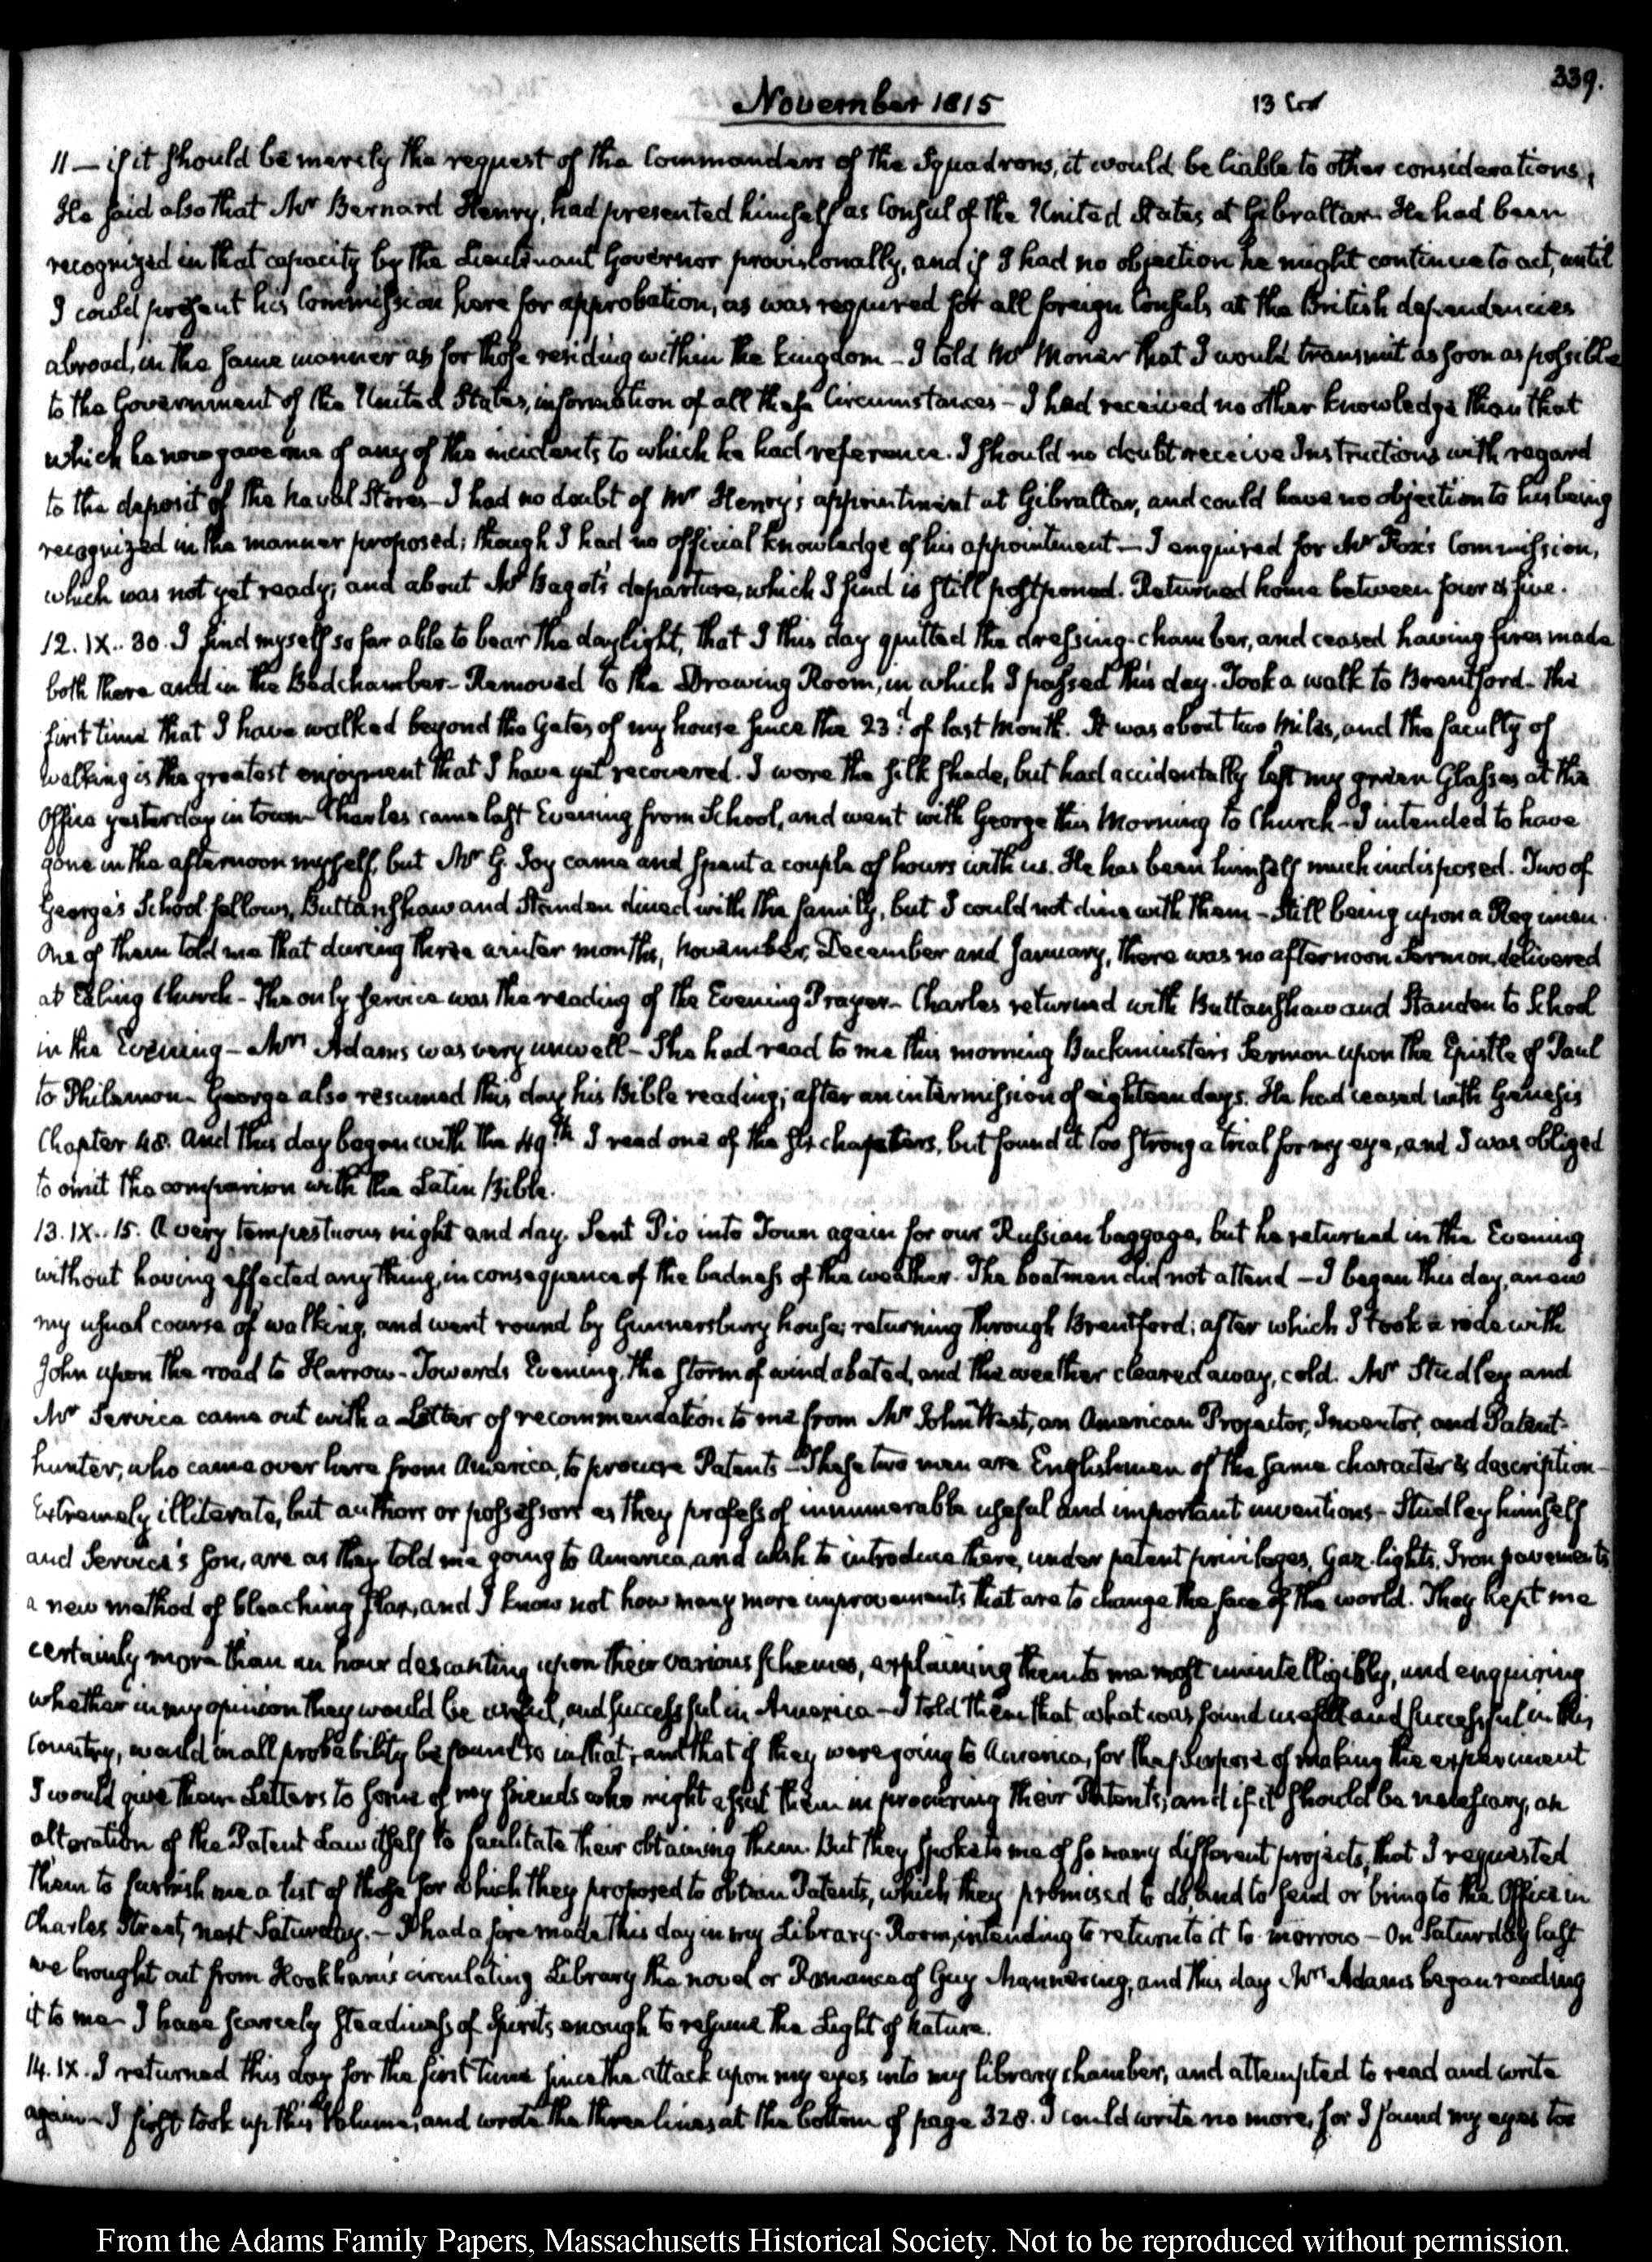 339.
November 1815
13
11 — if it should be merely the request of the Commanders of the Squadrons, it would be liable to other considerations,
He said also that Mr Bernard Henry, had presented himself as Consul of the United States at Gibraltar. He had been
recognized in that capacity by the Lieutenant Governor provisionally, and if I had no objection he might continue to act, until
I could present his Commission here for approbation, as was required for all foreign Consuls at the British dependencies
abroad, in the same manner as for those residing within the kingdom — I told Mr Morier that I would transmit as soon as possible
to the Government of the United States, information of all these Circumstances — I had received no other knowledge than that
which he now gave me of any of the incidents to which he had reference. I should no doubt receive Instructions with regard
to the deposit of the naval Stores — I had no doubt of Mr Henry's appointment at Gibraltar, and could have no objection to his being
recognized in the manner proposed; though I had no official knowledge of his appointment — I enquired for Mr Fox's Commission,
which was not yet ready; and about Mr Bagot's departure, which I find is still postponed. Returned home between four & five.
12. IX.. 30. I find myself so far able to bear the daylight, that I this day quitted the dressing-chamber, and ceased having fires made
both there and in the Bedchamber — Removed to the Drawing Room, in which I passed this day. Took a walk to Brentford — the
first time that I have walked beyond the Gates of my house since the 23d of last Month. It was about two Miles, and the faculty of
walking is the greatest enjoyment that I have yet recovered. I wore the silk shade, but had accidentally left my green Glasses at the
Office yesterday in town — Charles came last Evening from School, and went with George this Morning to Church — I intended to have
gone in the afternoon myself, but Mr G. Joy came and spent a couple of hours with us. He has been himself much indisposed. Two of
George's School-fellows, Buttanshaw and Standen dined with the family, but I could not dine with them — still being upon a Regimen.
One of them told me that during three winter months, November, December and January, there was no afternoon Sermon, delivered
at Ealing Church — The only service was the reading of the Evening Prayer — Charles returned with Buttanshaw and Standen to School
in the Evening — Mrs Adams was very unwell — She had read to me this morning Buckminster's Sermon upon the Epistle of Paul
to Philemon — George also resumed this day his Bible reading; after an intermission of eighteen days. He had ceased with Genesis
Chapter 48. and this day began with the 49th. I read one of the chapters, but found it too strong a trial for my eye, and I was obliged
to omit the comparison with the Latin Bible.
13. IX.. 15. A very tempestuous night and day. Sent Pio into Town again for our Russian baggage, but he returned in the Evening
without having effected any thing, in consequence of the badness of the weather. The boatmen did not attend — I began this day, anew
my usual course of walking, and went round by Gunnersbury house; returning through Brentford; after which I took a ride with
John upon the road to Harrow — Towards Evening, the storm of wind abated, and the weather cleared away, cold. Mr Studley and
Mr Service came out with a Letter of recommendation to me from Mr John West, an American Projector, Inventor, and Patent-
hunter, who came over here from America, to procure Patents — These two men are Englishmen of the same character & description —
Extremely illiterate, but authors or possessors as they profess of innumerable useful and important inventions — Studley himself
and Service's son, are as they told me going to America, and wish to introduce there, under patent privileges, Gaz-lights, Iron pavements
a new method of bleaching flax, and I know not how many more improvements that are to change the face of the world. They kept me
certainly more than an hour descanting upon their various schemes, explaining them to me most unintelligibly, and enquiring
whether in my opinion they would be useful, and successful in America — I told them that what was found useful and successful in this
Country, would in all probability be found so in that; and that if they were going to America, for the purpose of making the experiment
I would give them Letters to some of my friends who might assist them in procuring their Patents; and if it should be necessary, an
alteration of the Patent Law itself to facilitate their obtaining them. But they spoke to me of so many different projects, that I requested
them to furnish me a list of those for which they proposed to obtain Patents, which they promised to do, and to send or bring to the Office in
Charles Street, next Saturday. — I had a fire made this day in my Library-Room, intending to return to it to-morrow — On Saturday last
we brought out from Hookham's circulating Library the novel or Romance of Guy Mannering, and this day Mrs Adams began reading
it to me — I have scarcely steadiness of Spirits enough to resume the Light of Nature.
14. IX. I returned this day for the first time since the attack upon my eyes into my library chamber, and attempted to read and write
again — I first took up this Volume, and wrote the three lines at the bottom of page 328. I could write no more, for I found my eyes too
From the Adams Family Papers, Massachusetts Historical Society. Not to be reproduced without permission.